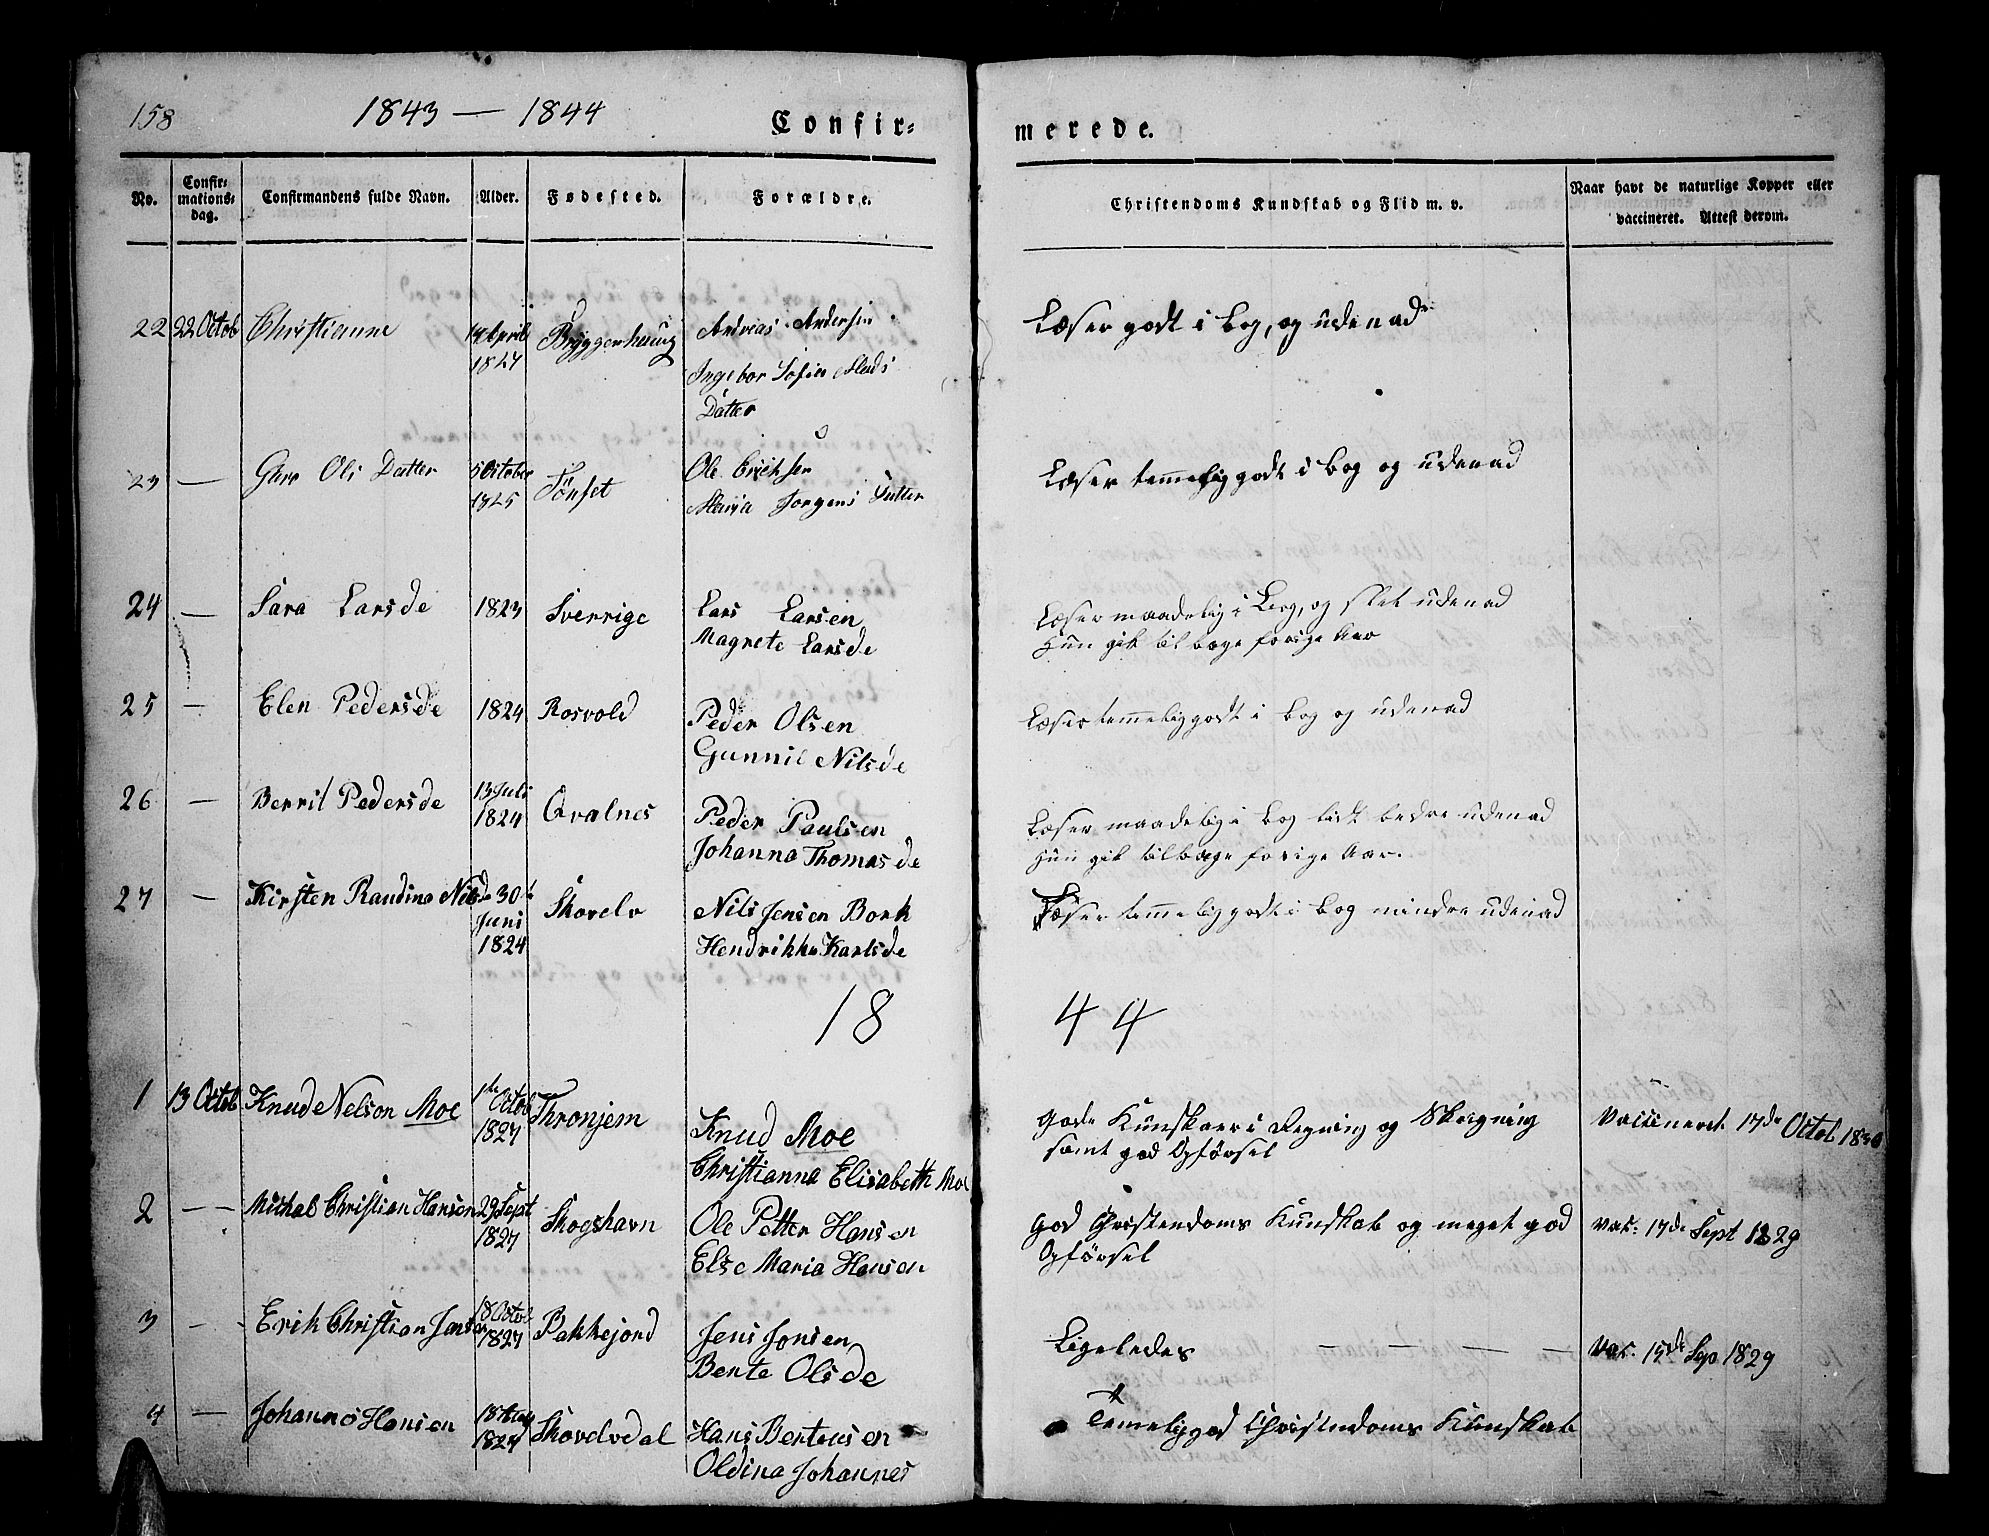 158
1843 — 1844
Confir=
merede.
No.
Confir=
mations=
dag.
Confirmandens fulde Navn.
Alder.
Fødested.
Forældre.
Christendoms Kundskab og Flid m. v.
Naar havt de naturlige Kopper eller
vaccineret. Attest derom.
22 22 Octob Christianne
April
1827
Andreas Andersen
Ingebor Sofia Mads
Datter
Læser godt i bog, og udenad
23 — Ols Datter
5 Octobr
1825
Tönset
Ole Eriksen
Maria Jorgens Datter
Læser temmelig godt i bog og udenad
24 — Sara Larsde 1823 Sverrige
Lars Larsen
Magrete Larsde
Læser maadelig i Bog, og slet udenad
Hun gik tilbage forige Aar
25 — Elen Pedersde 1824 Rosvold
Peder Olsen
Gunnil Nilsde
Læser temmelig godt i bog og udenad
26 — Berril Pedersde
13 Juli
1824
Qvalnes
Peder Paulsen
Johanna Thomasde
Læser maadelig i bog lidt bedre udenad
Hun gik tilbage forige Aar.
27 — Kirsten Raudina Nilsde
30t
Juni
1824
Skovelv
Nils Jensen Bork
Hendrikka Karlsde
Læser temmelig godt i bog mindre udenad
18 44
1 13 Octob Knud Nelson Moe
1te Octob
1827
Thronjem
Knud Moe
Christianna Elisabeth Moe
gode Kunskaer i Regning og Skrivning
samt god Opførsel
Vacineret 17de Octob 1830
2 — — Michal Christian Hansen
29 Sept
1827
Skogshavn
Ole Petter Hansen
Else Maria Hansen
god Christendoms Kundskab og meget god
Opførsel
Vac. 17de Sept 1829
3 — — Erik Christian Jensen
18 Octob
1827
Bakkejord
Jens Jonsen
Bente Olsde
Ligeledes — — — — —
Vac. 15de Sep 1829
4 — Johannes Hansen
18 Aug
1827
Skovelvdal
Hans Bentensen
Oldina Johannes
Temelig god Christendoms Kundskab